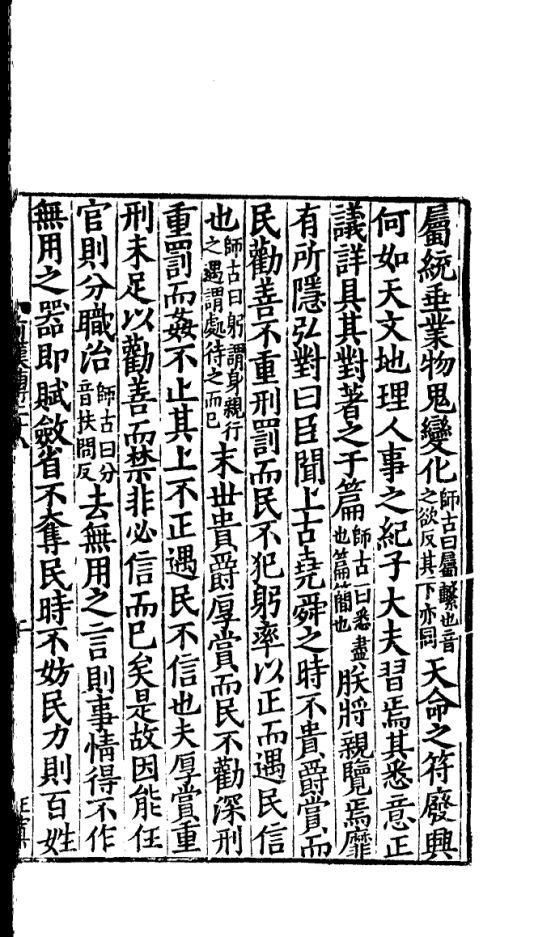 屬統垂業物鬼變化師古曰屬繫也音之欲反其下亦同天命之符廢興
何如天文地理人事之紀子大夫習焉其悉意正
議詳具其對著之于篇師古曰悉盡也篇簡也朕將親覽焉靡
有所隱弘對曰臣聞上古堯舜之時不貴爵賞而
民勸善不重刑罰而民不犯躬率以正而遇民信
也師古曰躬謂身親行之遇謂處待之而已末世貴爵厚賞而民不勸深刑
重罰而姦不止其上不正遇民不信也夫厚賞重
刑未足以勸善而禁非必信而已矣是故因能任
官則分職治師古曰分音扶問反去無用之言則事情得不作
無用之器即賦斂省不奪民時不妨民力則百姓